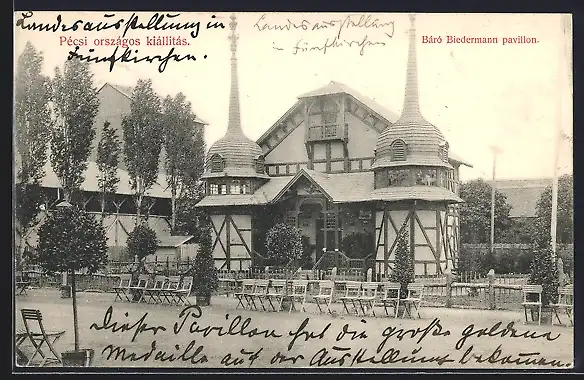 Landesausstellung in
Fünfkirchen.
Pécsi országos kiállitás.
Landesausstellung
in Fünfkirchen
Báró Biedermann pavillon.
Dieser Pavillon, hat die große goldene
Medaille auf der Ausstellung bekomen.